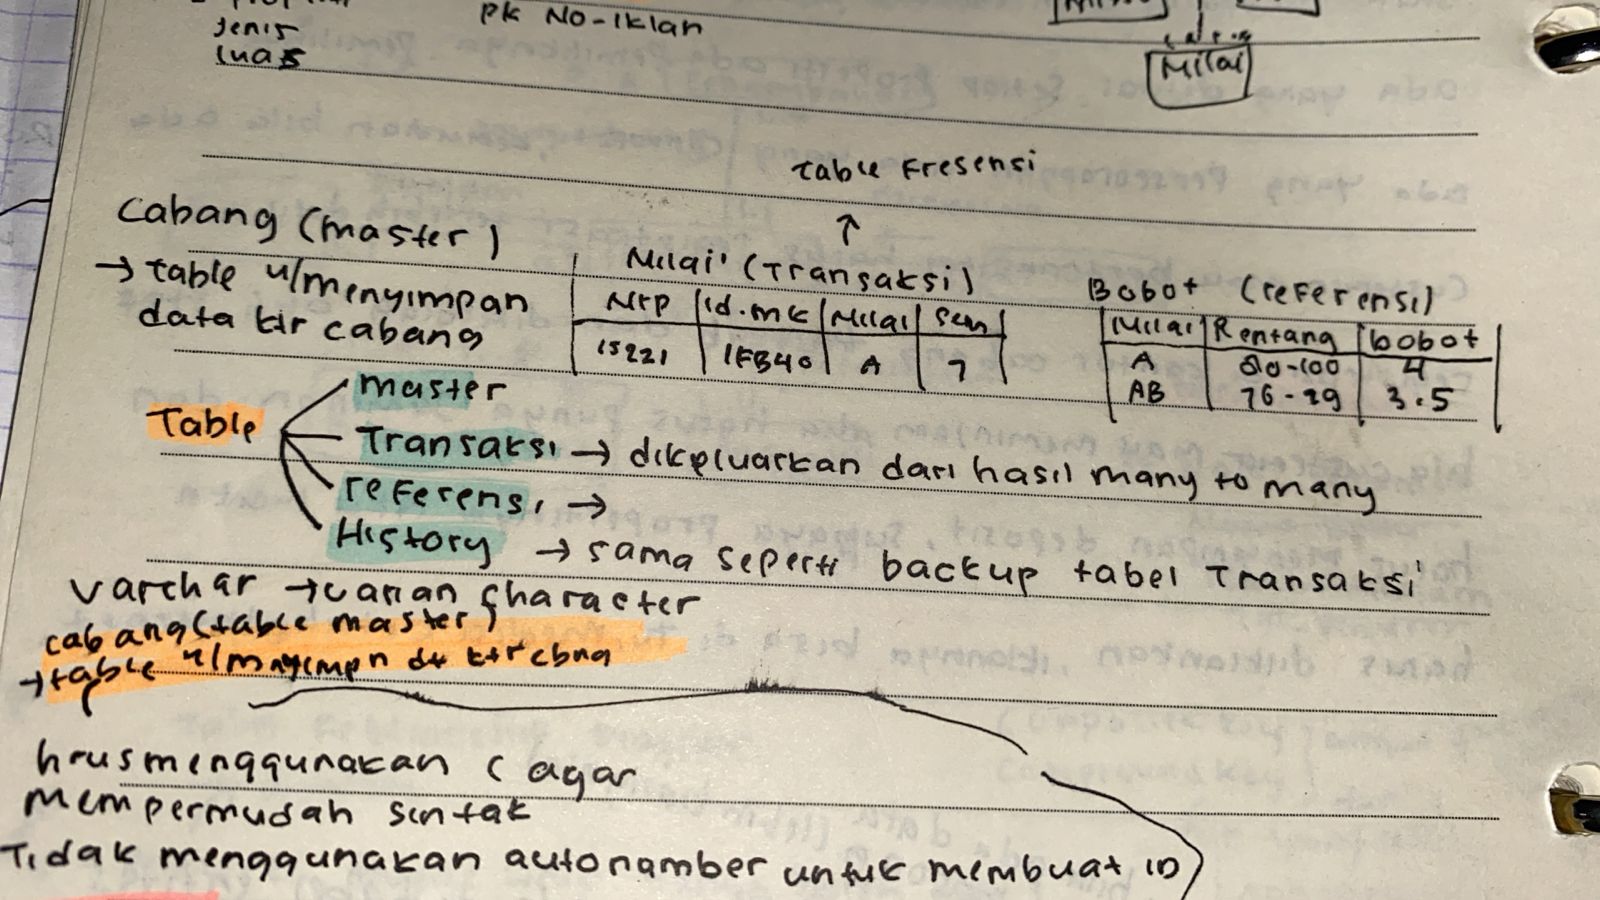 Jenis
luas
PK No-Iklan
Nilai
table Fresensi
↑
Cabang (master)
→ table u/menyimpan
data ktr cabang
Nilai (Transaksi)
Nrp | id.mk | Nilai | Sem
15221 | IFB40 | A | 7
Bobot (referensi)
Nilai | Rentang | bobot
A | 80-100 | 4
AB | 76-79 | 3.5
Table
master
Transaksi → dikeluarkan dari hasil many to many
referensi →
History → sama seperti backup tabel Transaksi
varchar → varian character
cabang (table master)
→ table u/mnyimpn dt ktr cbng
hrus menggunakan ( agar
mempermudah sintak
Tidak menggunakan autonamber untuk membuat ID)